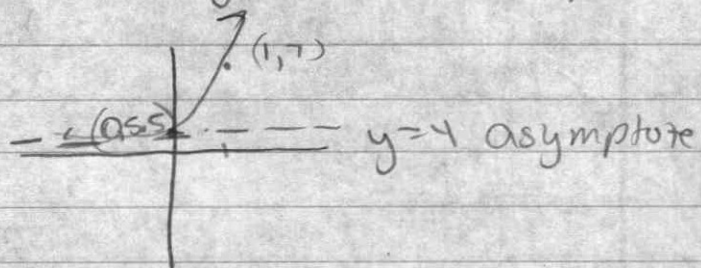 (1,7)
(0,5.5)
y=4 asymptote